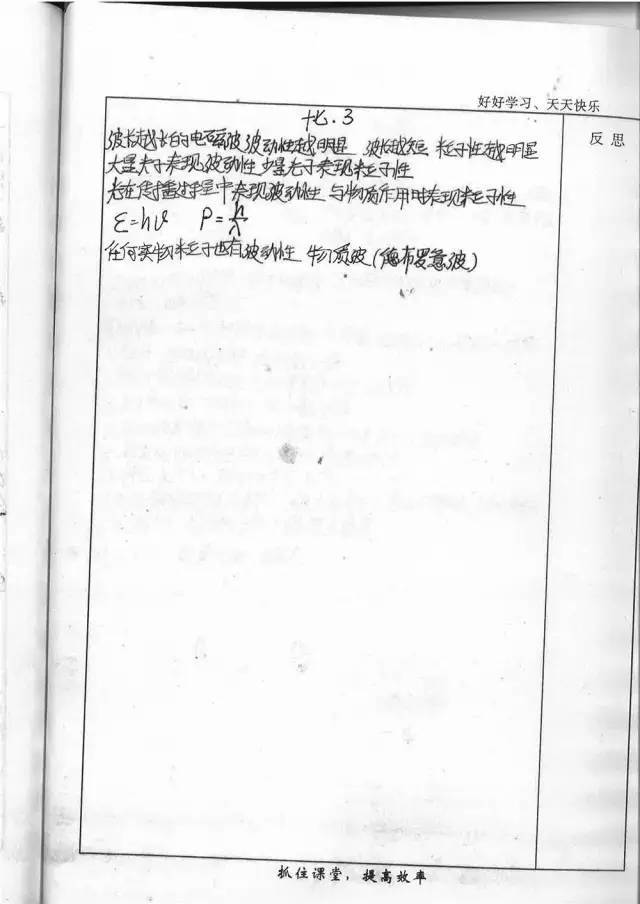 好好学习、天天快乐
十七.3
反思
波长越长的电磁波 波动性越明显 波长越短 粒子性越明显
大量光子表现波动性 少量光子表现粒子性
光在传播过程中表现波动性 与物质作用时表现粒子性
ε=hν P=h/λ
任何实物粒子也有波动性 物质波(德布罗意波)
抓住课堂，提高效率